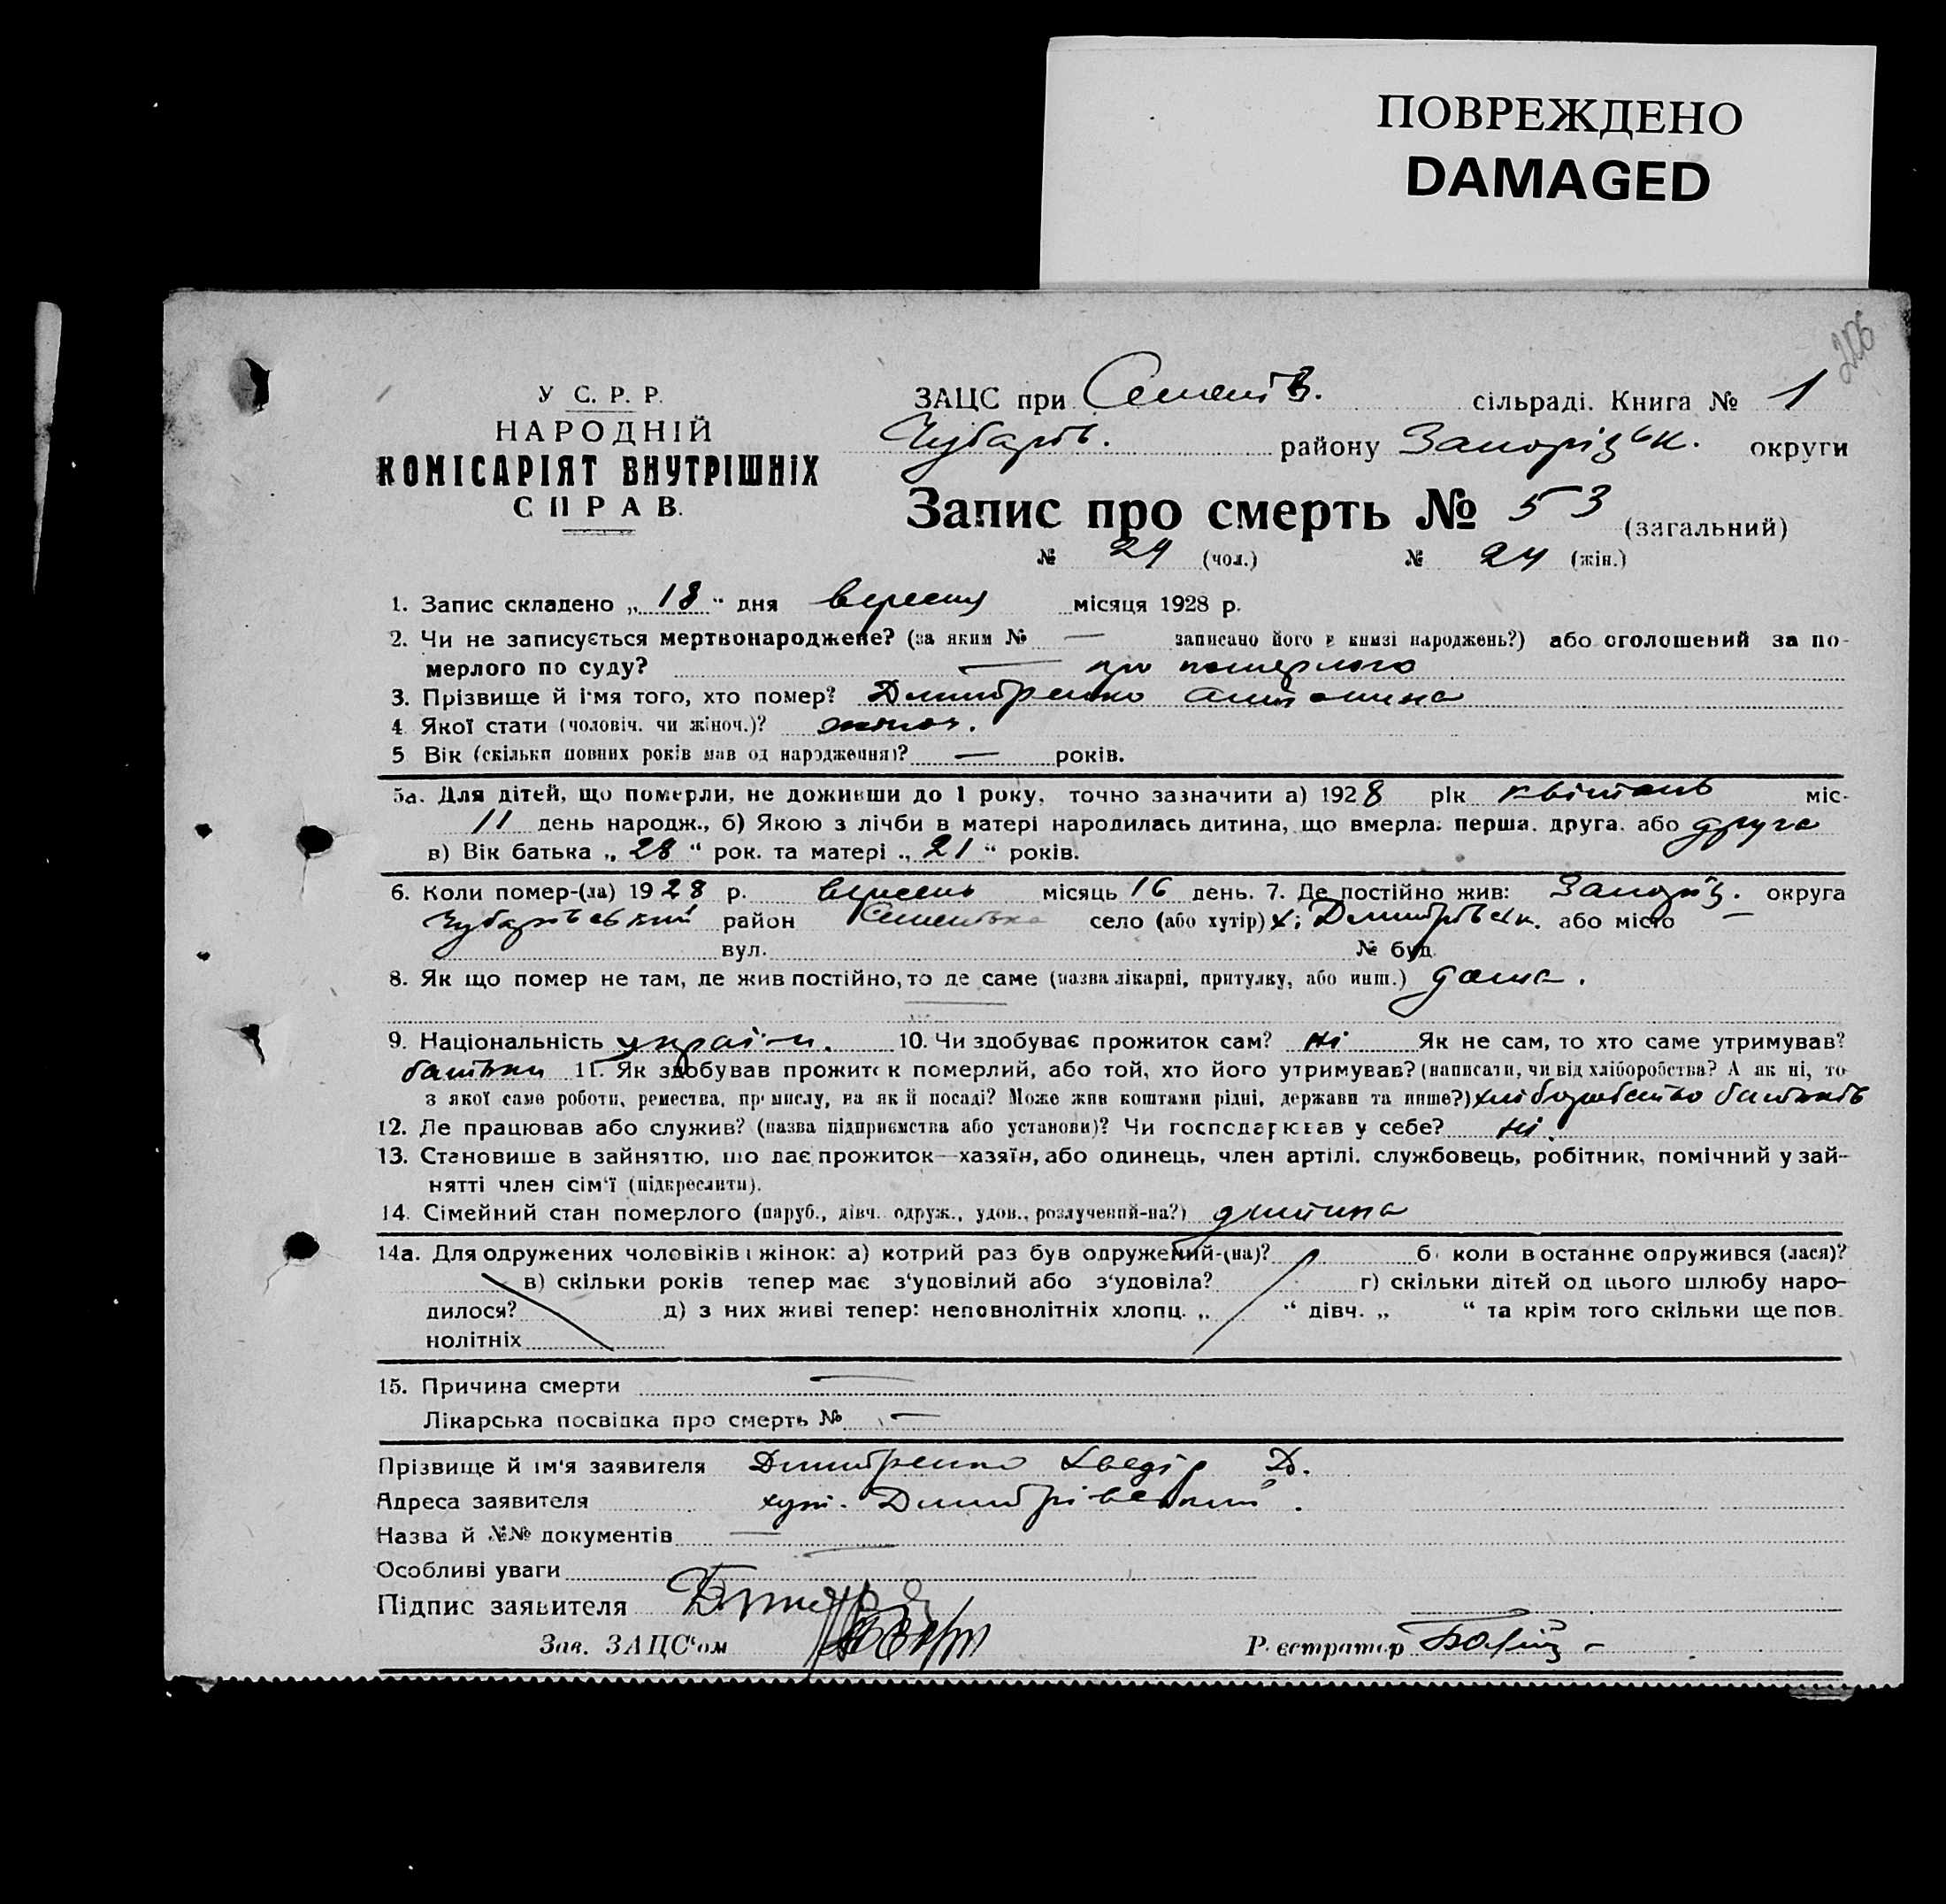 ПОВРЕЖДЕНО
DAMAGED
226
У С. Р. Р.
НАРОДНІЙ
КОМІСАРІЯТ ВНУТРІШНІХ
СПРАВ.
ЗАЦС при Семенів. сільраді. Книга № 1
Чубарів. району Запорізьк. округи
Запис про смерть № 53 (загальний)
№ 29 (чол.) № 24 (жін.)
1. Запис складено „ 18 “ дня вересня місяця 1928 р.
2. Чи не записується мертвонароджене? (за яким № — записано його в книзі народжень?) або оголошений за по-
мерлого по суду? — про померлого
3. Прізвище й ім'я того, хто помер? Дмитренко Антонина
4. Якої стати (чоловіч. чи жіноч.)? жіноч.
5 Вік (скільки повних років мав од народження)? — років.
5а. Для дітей, що померли, не доживши до 1 року, точно зазначити а) 1928 рік квітень міс-
11 день народж., б) Якою з лічби в матері народилась дитина, що вмерла: перша. друга. або друга
в) Вік батька „ 28 “ рок. та матері „ 21 “ років.
6. Коли помер-(ла) 1928 р. вересень місяць 16 день. 7. Де постійно жив: Запоріз. округа
Чубарівський район Семенівка село (або хутір) х; Дмитрівськ. або місто —
вул. № буд.
8. Як що помер не там, де жив постійно, то де саме (назва лікарні, притулку, або инш.) дома.
9. Національність україн. 10. Чи здобуває прожиток сам? ні Як не сам, то хто саме утримував?
батьки 11. Як здобував прожиток померлий, або той, хто його утримував? (написати, чи від хліборобства? А як ні, то
з якої саме роботи, ремества, промислу, на якій посаді? Може жив коштами рідні, держави та инше?) хліборобство батьків
12. Де працював або служив? (назва підприємства або установи)? Чи господарював у себе? ні.
13. Становище в зайняттю, що дає прожиток—хазяїн, або одинець, член артілі, службовець, робітник, помічний у зай-
нятті член сім'ї (підкреслити).
14. Сімейний стан померлого (паруб., дівч. одруж., удов., розлучений-на?) дитина
14а. Для одружених чоловіків і жінок: а) котрий раз був одружений-(на)? б) коли востаннє одружився (лася)?
в) скільки років тепер має з'удовілий або з'удовіла? г) скільки дітей од цього шлюбу наро-
дилося? д) з них живі тепер: неповнолітніх хлопц. „ “ дівч. „ “ та крім того скільки ще пов-
нолітніх
15. Причина смерти —
Лікарська посвідка про смерть № —
Прізвище й ім'я заявителя Дмитренко Хведір Д.
Адреса заявителя хут. Дмитрівський.
Назва й №№ документів —
Особливі уваги —
Підпис заявителя
Зав. ЗАЦС'ом Реєстратор